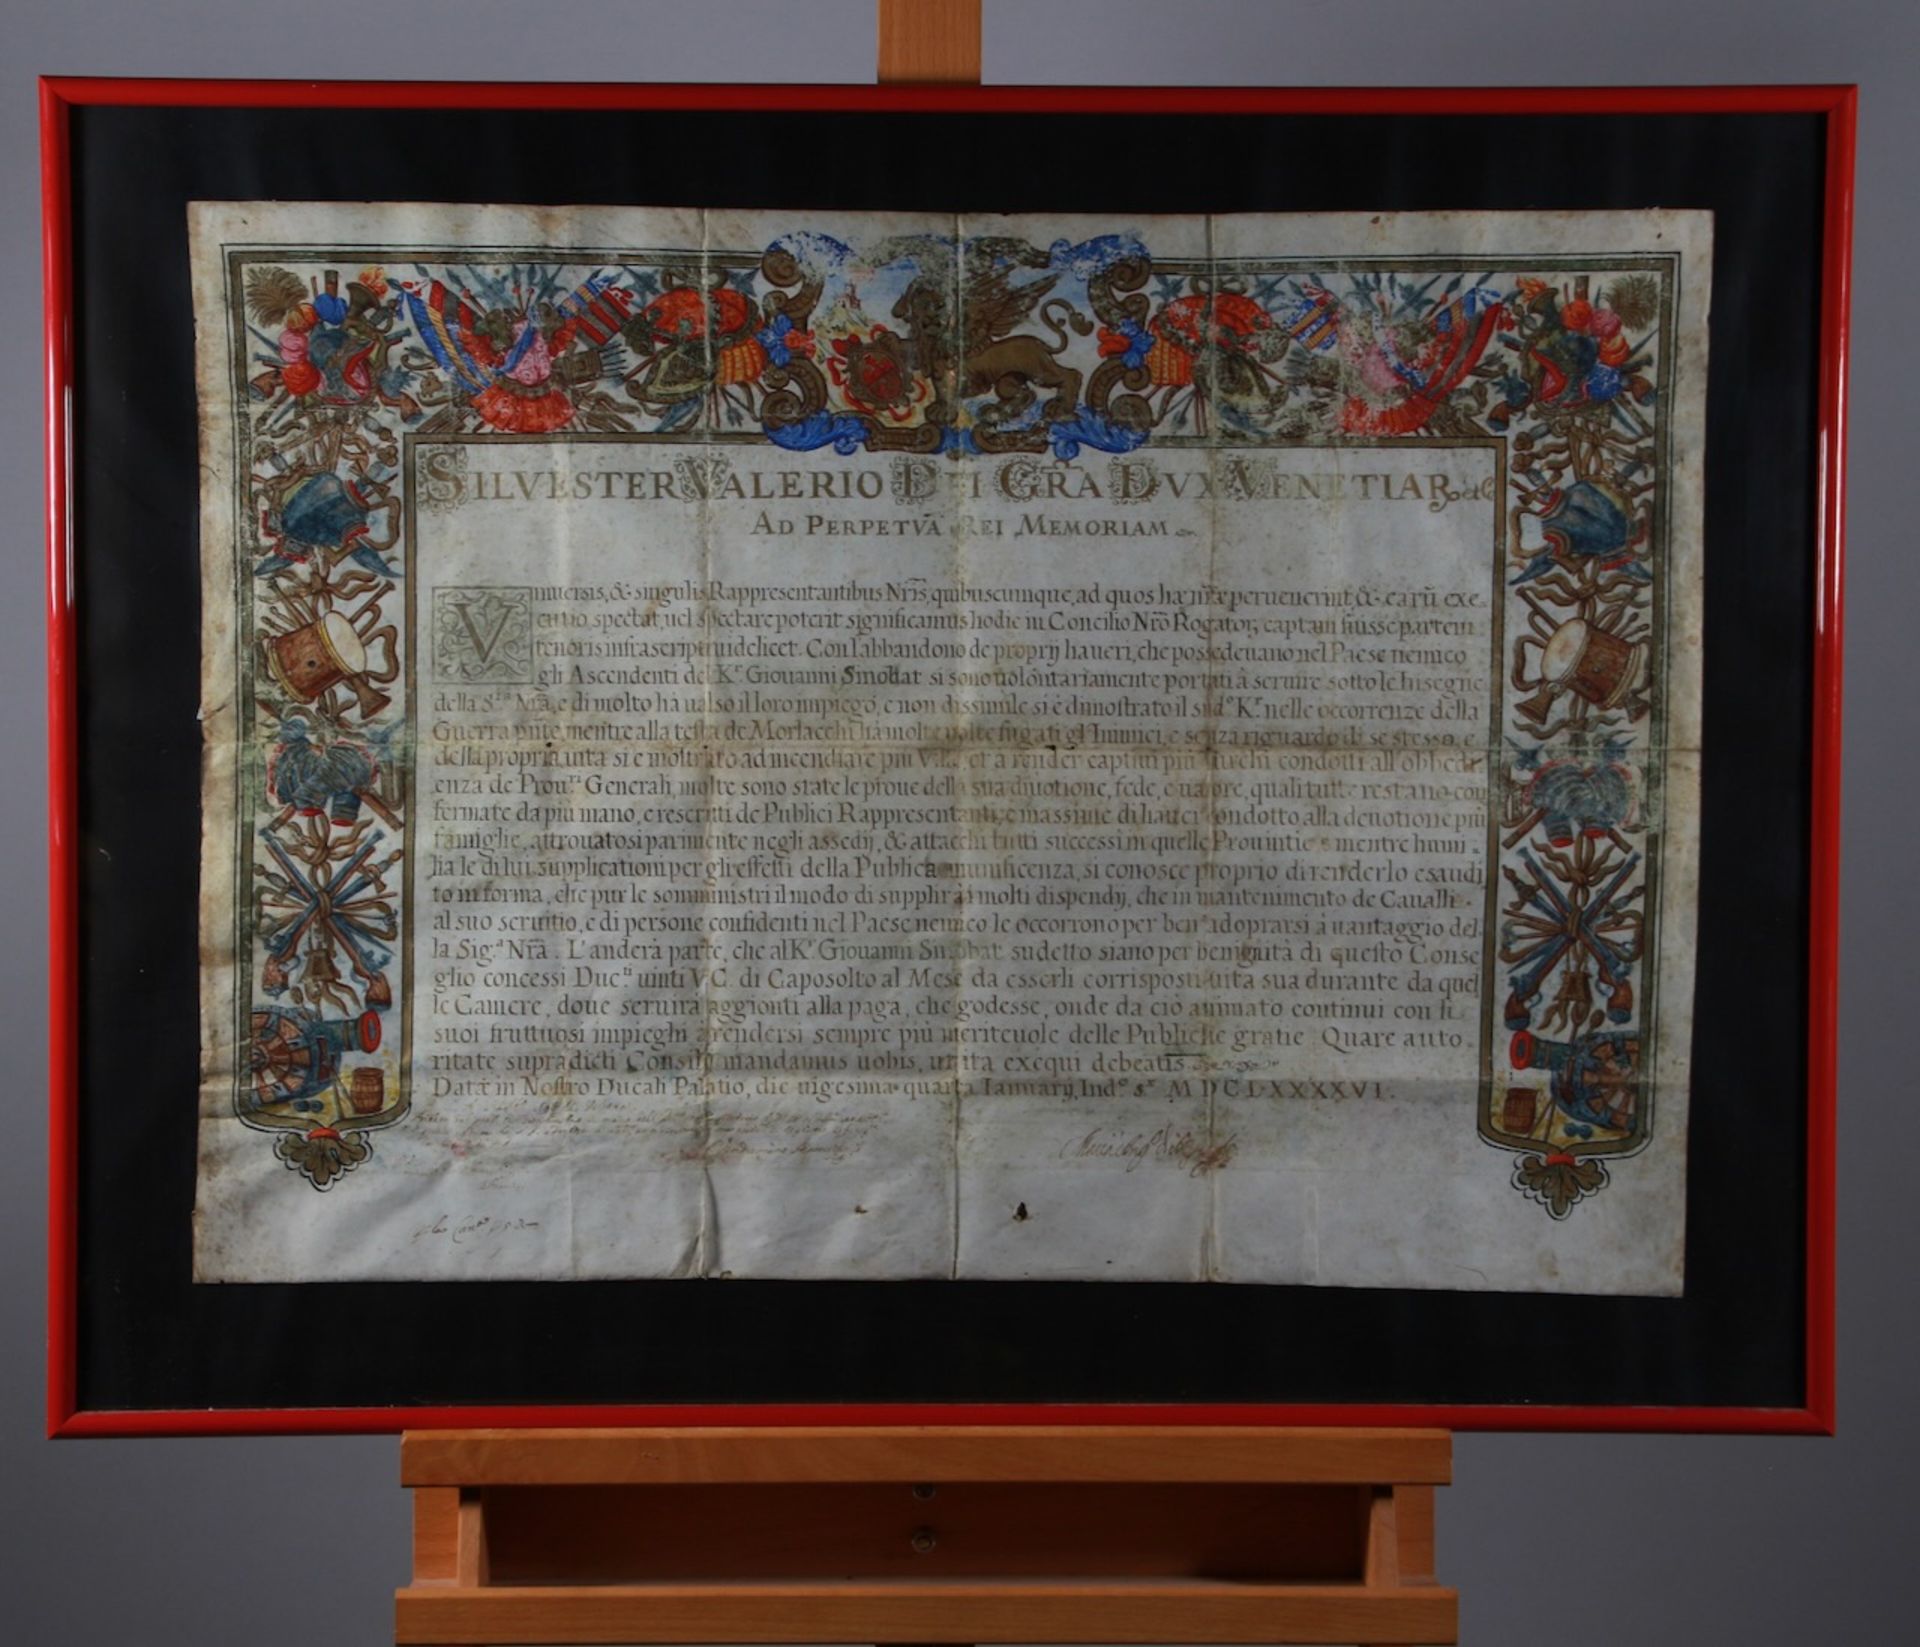 SILVESTER VALERIO DEI GRĀ DVX VENETIAR &C
AD PERPETVĀ REI MEMORIAM
Vniuersis, & singulis Rappresentantibus Nrīs, quibuscunque, ad quos hæ nrǣ peruenerint, & earū exe-
cutio spectat, uel spectare poterit significamus hodie in Concilio Nrō Rogator captam fuisse partem
tenoris infrascripti uidelicet. Con l'abbandono de proprij haueri, che possedeuano nel Paese nemico
gli Ascendenti del Kr. Giouanni Sinobat si sono uolontariamente portati à seruire sotto le Insegne
della S.ra Nrā, e di molto hà ualso il loro impiego, e non dissimile si è dimostrato il sud.o Kr. nelle occorrenze della
Guerra pn̄te, mentre alla testa de Morlacchi hà molte uolte fugati gl'Inimici, e senza riguardo di se stesso, e
della propria uita si è mostrato ad incendiare più Ville, et a render captiui più Turchi condotti all'obbedi-
enza de Prou.ri Generali, molte sono state le proue della sua diuotione, fede, e ualore, quali tutte restano con
fermate da più mano, e rescritti de Publici Rappresentanti, e massime di hauer condotto alla deuotione più
famiglie, attrouatosi parimente negli assedij, & attacchi tutti successi in quelle Prouintie, e mentre humi-
lia le di lui supplicationi per gli effetti della Publica munificenza, si conosce proprio di renderlo esaudi
to in forma, che pur le somministri il modo di supplir ai molti dispendij, che in mantenimento de Caualli
al suo seruitio, e di persone confidenti nel Paese nemico le occorrono per ben adoprarsi à uantaggio del-
la Sig.a Nrā. L'anderà parte, che al Kr. Giouanni Sinobat sudetto siano per benignità di questo Conse
glio concessi Duc.ti uinti V.C. di Caposolto al Mese da esserli corrisposti uita sua durante da quel
le Camere, doue seruirà aggionti alla paga, che godesse, onde da ciò animato continui con li
suoi fruttuosi impieghi à rendersi sempre più meriteuole delle Publiche gratie. Quare auto-
ritate supradicti Consilij mandamus uobis, ut ita exequi debeatis
Datæ in Nostro Ducali Palatio, die uigesima quarta Ianuarij, Ind.e MDCLXXXXVI.